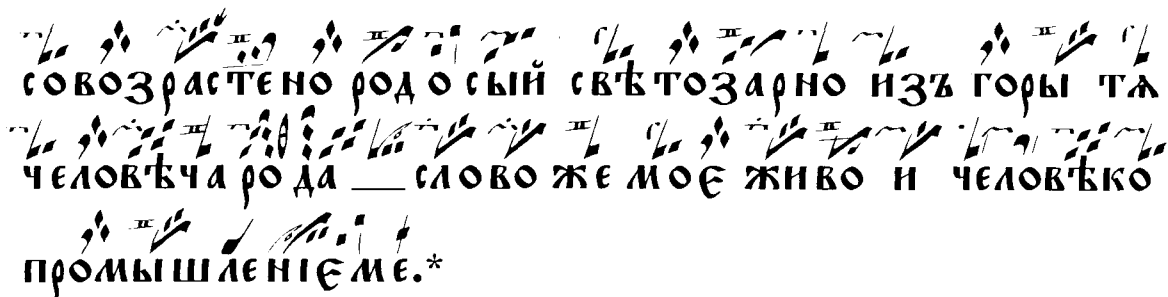 совозрастено родосый свѣтозарно изъ горы тѧ
человѣча рода __ слово же моє живо и человѣко
промышленіє ме.*